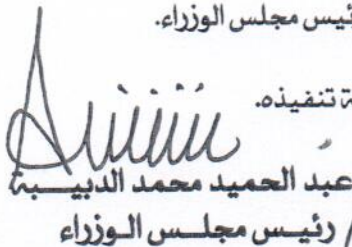 رئيس مجلس الوزراء.
تنفيذه.
عبد الحميد محمد الدبيبة
/ رئيس مجلس الوزراء